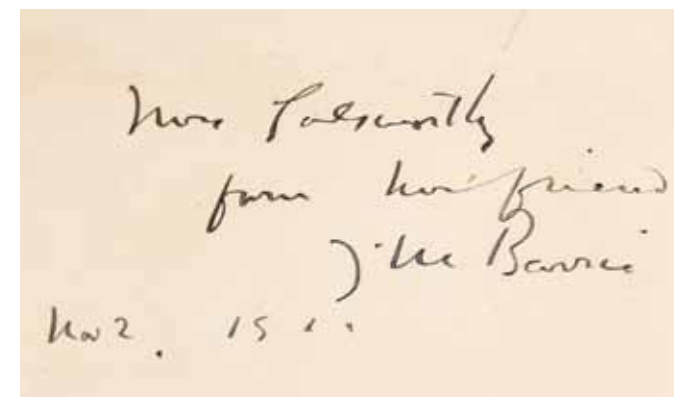 Mrs Galsworthy
from her friend
J. M. Barrie
Nov 2.